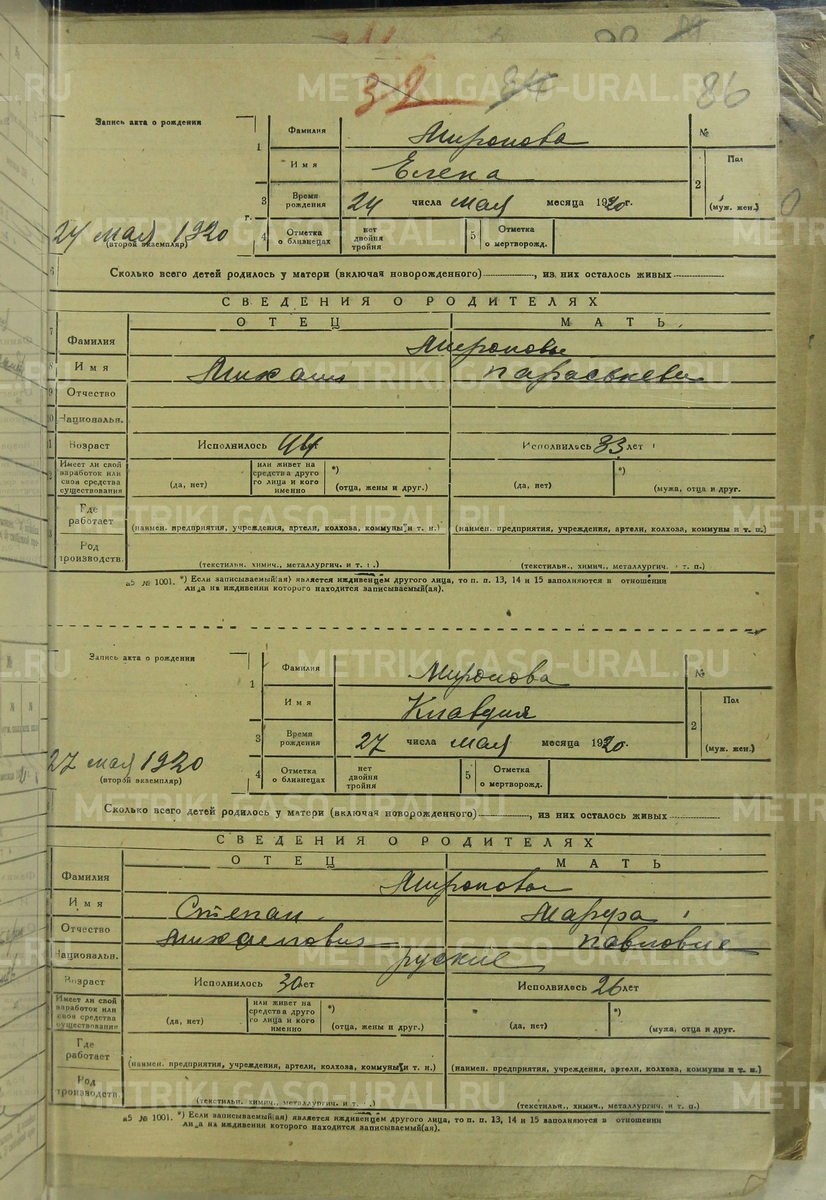 32 84 86
Запись акта о рождении
1 Фамилия Миронова №
Имя Елена 2 Пол
3 Время рождения 24 числа мая месяца 1920 г. (муж. жен.)
24 мая 1920 г.
(второй экземпляр)
4 Отметка о близнецах нет двойня тройня 5 Отметка о мертворожд.
6 Сколько всего детей родилось у матери (включая новорожденного) , из них осталось живых
СВЕДЕНИЯ О РОДИТЕЛЯХ
ОТЕЦ МАТЬ
7 Фамилия Мироновы
8 Имя Михаил Параськеви
9 Отчество
10 Национальн.
Возраст Исполнилось 44 Исполнилось 33 лет
Имеет ли свой заработок или свои средства существования (да, нет) или живет на средства друго го лица и кого именно *) (отца, жены и друг.) (да, нет) *) (мужа, отца и друг.)
Где работает (наимен. предприятия, учреждения, артели, колхоза, коммуны и т. п.) (наимен. предприятия, учреждения, артели, колхоза, коммуны и т. п.)
Род производств. (текстильн. химич., металлургич. и т. .) (текстильн., химич., металлургич. т. п.)
а5 № 1001. *) Если записываемый(ая) является иждивенцем другого лица, то п. п. 13, 14 и 15 заполняются в отношении
лица на иждивении которого находится записываемый(ая).
Запись акта о рождении
1 Фамилия Миронова №
Имя Клавдия 2 Пол
3 Время рождения 27 числа мая месяца 1920 г. (муж. жен.)
27 мая 1920
(второй экземпляр)
4 Отметка о близнецах нет двойня тройня 5 Отметка о мертворожд.
Сколько всего детей родилось у матери (включая новорожденного) , из них осталось живых
СВЕДЕНИЯ О РОДИТЕЛЯХ
ОТЕЦ МАТЬ
Фамилия Мироновы
Имя Степан Марфа
Отчество Михаелович Павловне
Национальн. руские
Возраст Исполнилось 30 лет Исполнилось 26 лет
Имеет ли свой заработок или свои средства существования (да, нет) или живет на средства друго го лица и кого именно *) (отца, жены и друг.) (да, нет) *) (мужа, отца и друг.)
Где работает (наимен. предприятия, учреждения, артели, колхоза, коммуны и т. п.) (наимен. предприятия, учреждения, артели, колхоза, коммуны и т. п.)
Род производств. (текстильн., химич., металлургич. и т. .) (текстильн., химич., металлургич. и т. п.)
а5 № 1001. *) Если записываемый(ая) является иждивенцем другого лица, то п. п. 13, 14 и 15 заполняются в отношении
лица на иждивении которого находится записываемый(ая).
METRIKI.GASO-URAL.RU